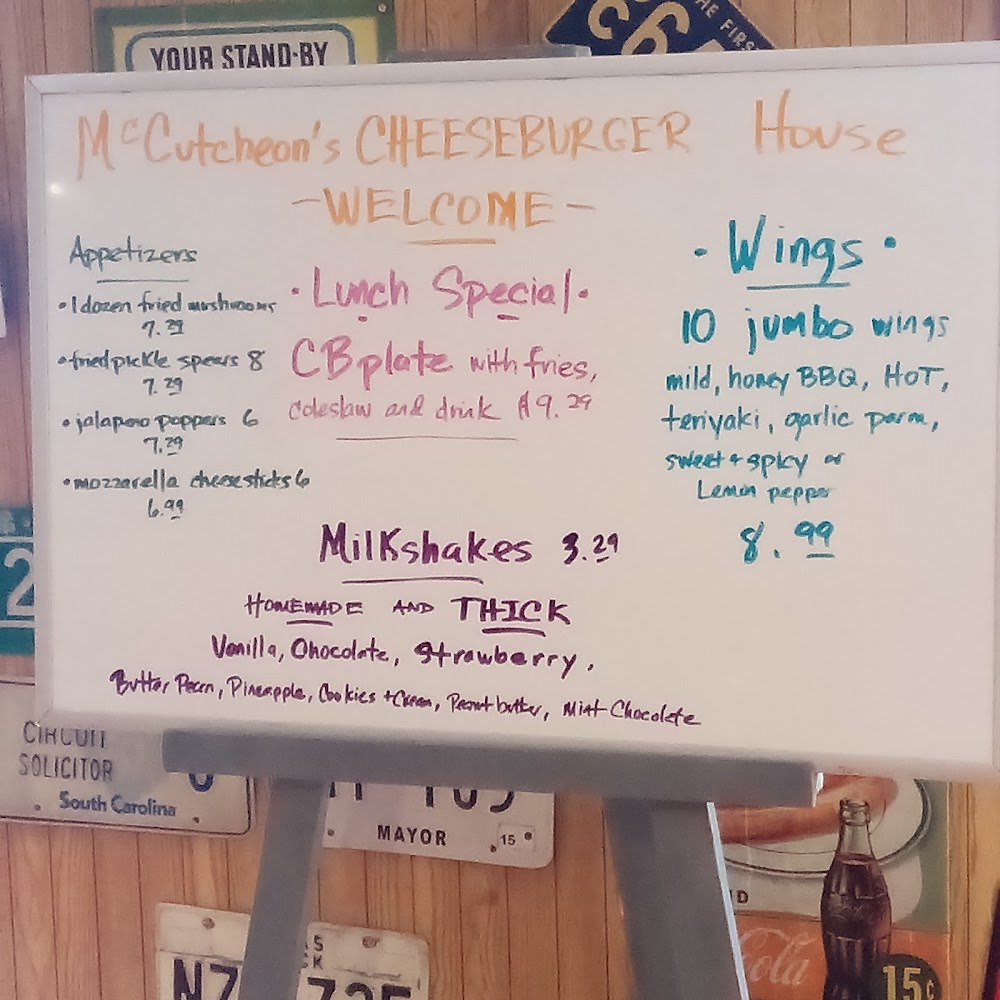 YOUR STAND-BY
THE FIRS
McCutcheon's CHEESEBURGER House
-WELCOME-
Appetizers
• 1 dozen fried mushrooms
7.29
• fried pickle spears 8
7.29
• jalapeno poppers 6
7.29
• mozzarella cheese sticks 6
6.99
• Lunch Special •
CB plate with fries,
coleslaw and drink $9.29
• Wings •
10 jumbo wings
mild, honey BBQ, HOT,
teriyaki, garlic parm,
sweet + spicy or
Lemon pepper
8.99
MilKshakes 3.29
HOMEMADE AND THICK
Vanilla, Chocolate, Strawberry,
Butter Pecan, Pineapple, Cookies + Cream, Peanut butter, Mint Chocolate
2
CIRCUIT
SOLICITOR
South Carolina
MAYOR
15
NZ
Cola
15¢